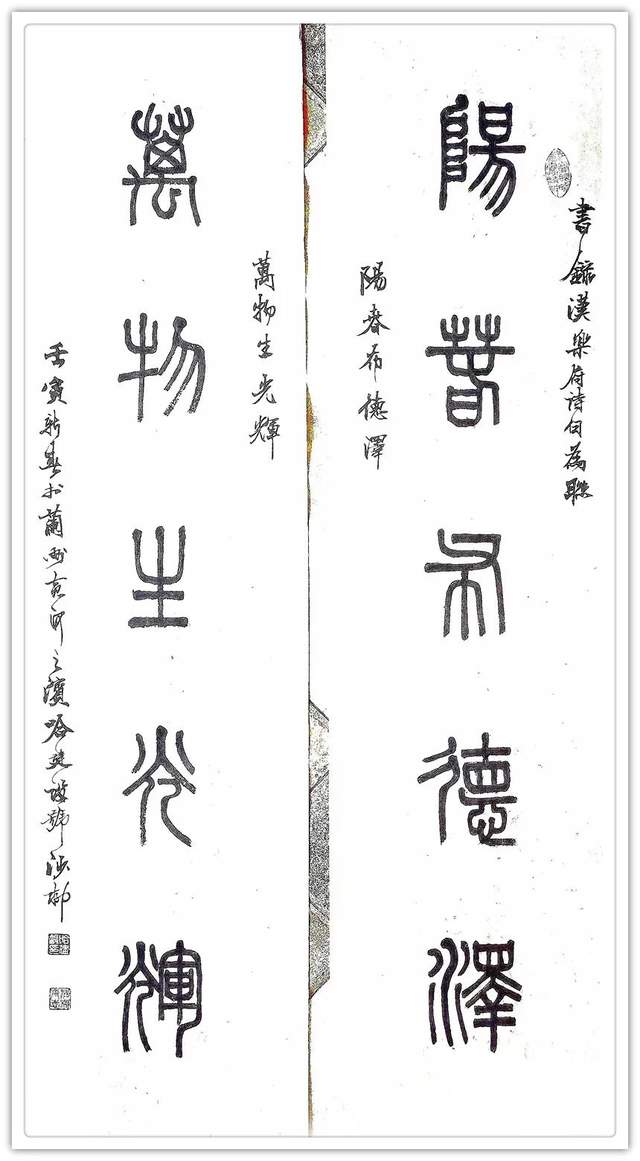 書錄漢樂府詩句為聯
陽春布德澤
陽春布德澤
萬物生光輝
萬物生光輝
壬寅新春於蘭州黃河之濱哈建設號